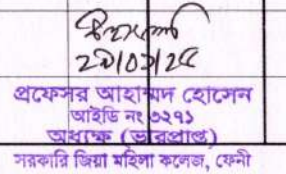 ২৯/০১/২৫
প্রফেসর আহাম্মদ হোসেন
আইডি নং ৩২৭১
অধ্যক্ষ (ভারপ্রাপ্ত)
সরকারি জিয়া মহিলা কলেজ, ফেনী